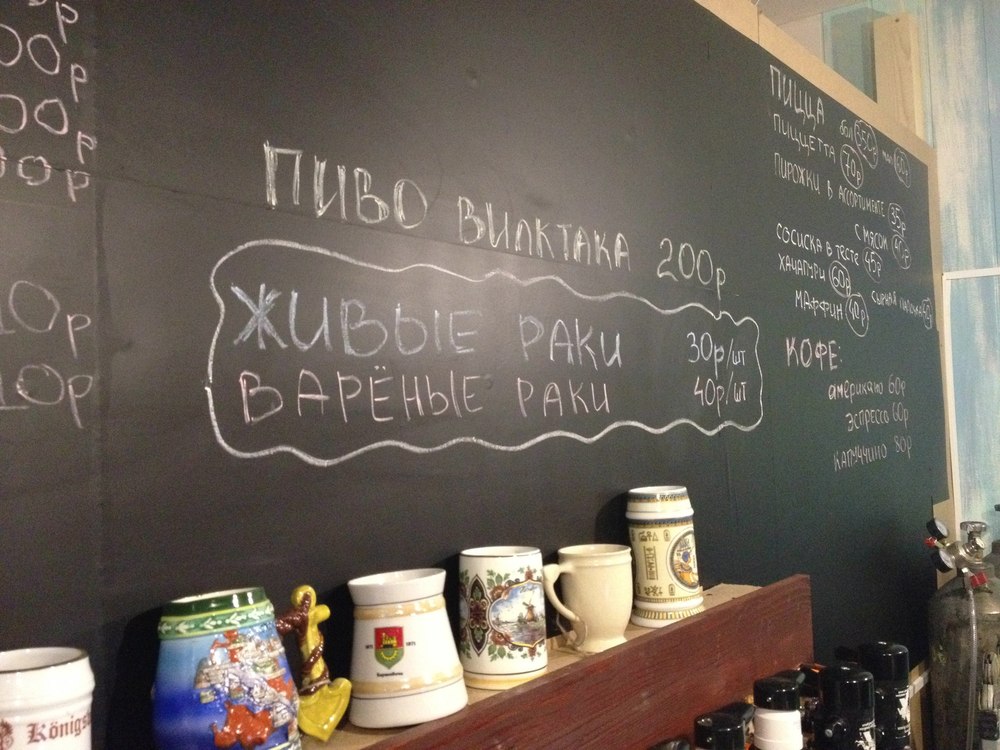 00р
00р
00р
10р
10р
ПИВО ВИЛКТАКА 200р
ЖИВЫЕ РАКИ 30р/шт
ВАРЁНЫЕ РАКИ 40р/шт
ПИЦЦА бол 350р 60р
ПИЦЦЕТТА 70р
ПИРОЖКИ В АССОРТИМЕНТЕ 35р
С МЯСОМ 40р
СОСИСКА В ТЕСТЕ 45р
ХАЧАПУРИ 60р СЫРНАЯ ПАЛОЧКА
МАФФИН 40р
КОФЕ:
американо 60р
ЭСПРЕССО 60р
КАПУЧЧИНО 80р
Königs